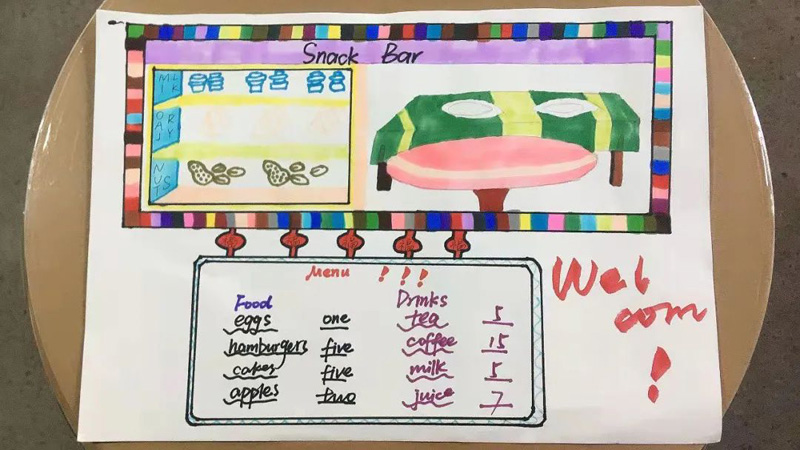 Snack Bar
MILK
NUTS
Menu !!!
Food Drinks
eggs one tea 5
hamburgers five coffee 15
cakes five milk 5
apples two juice 7
Wel
com
!